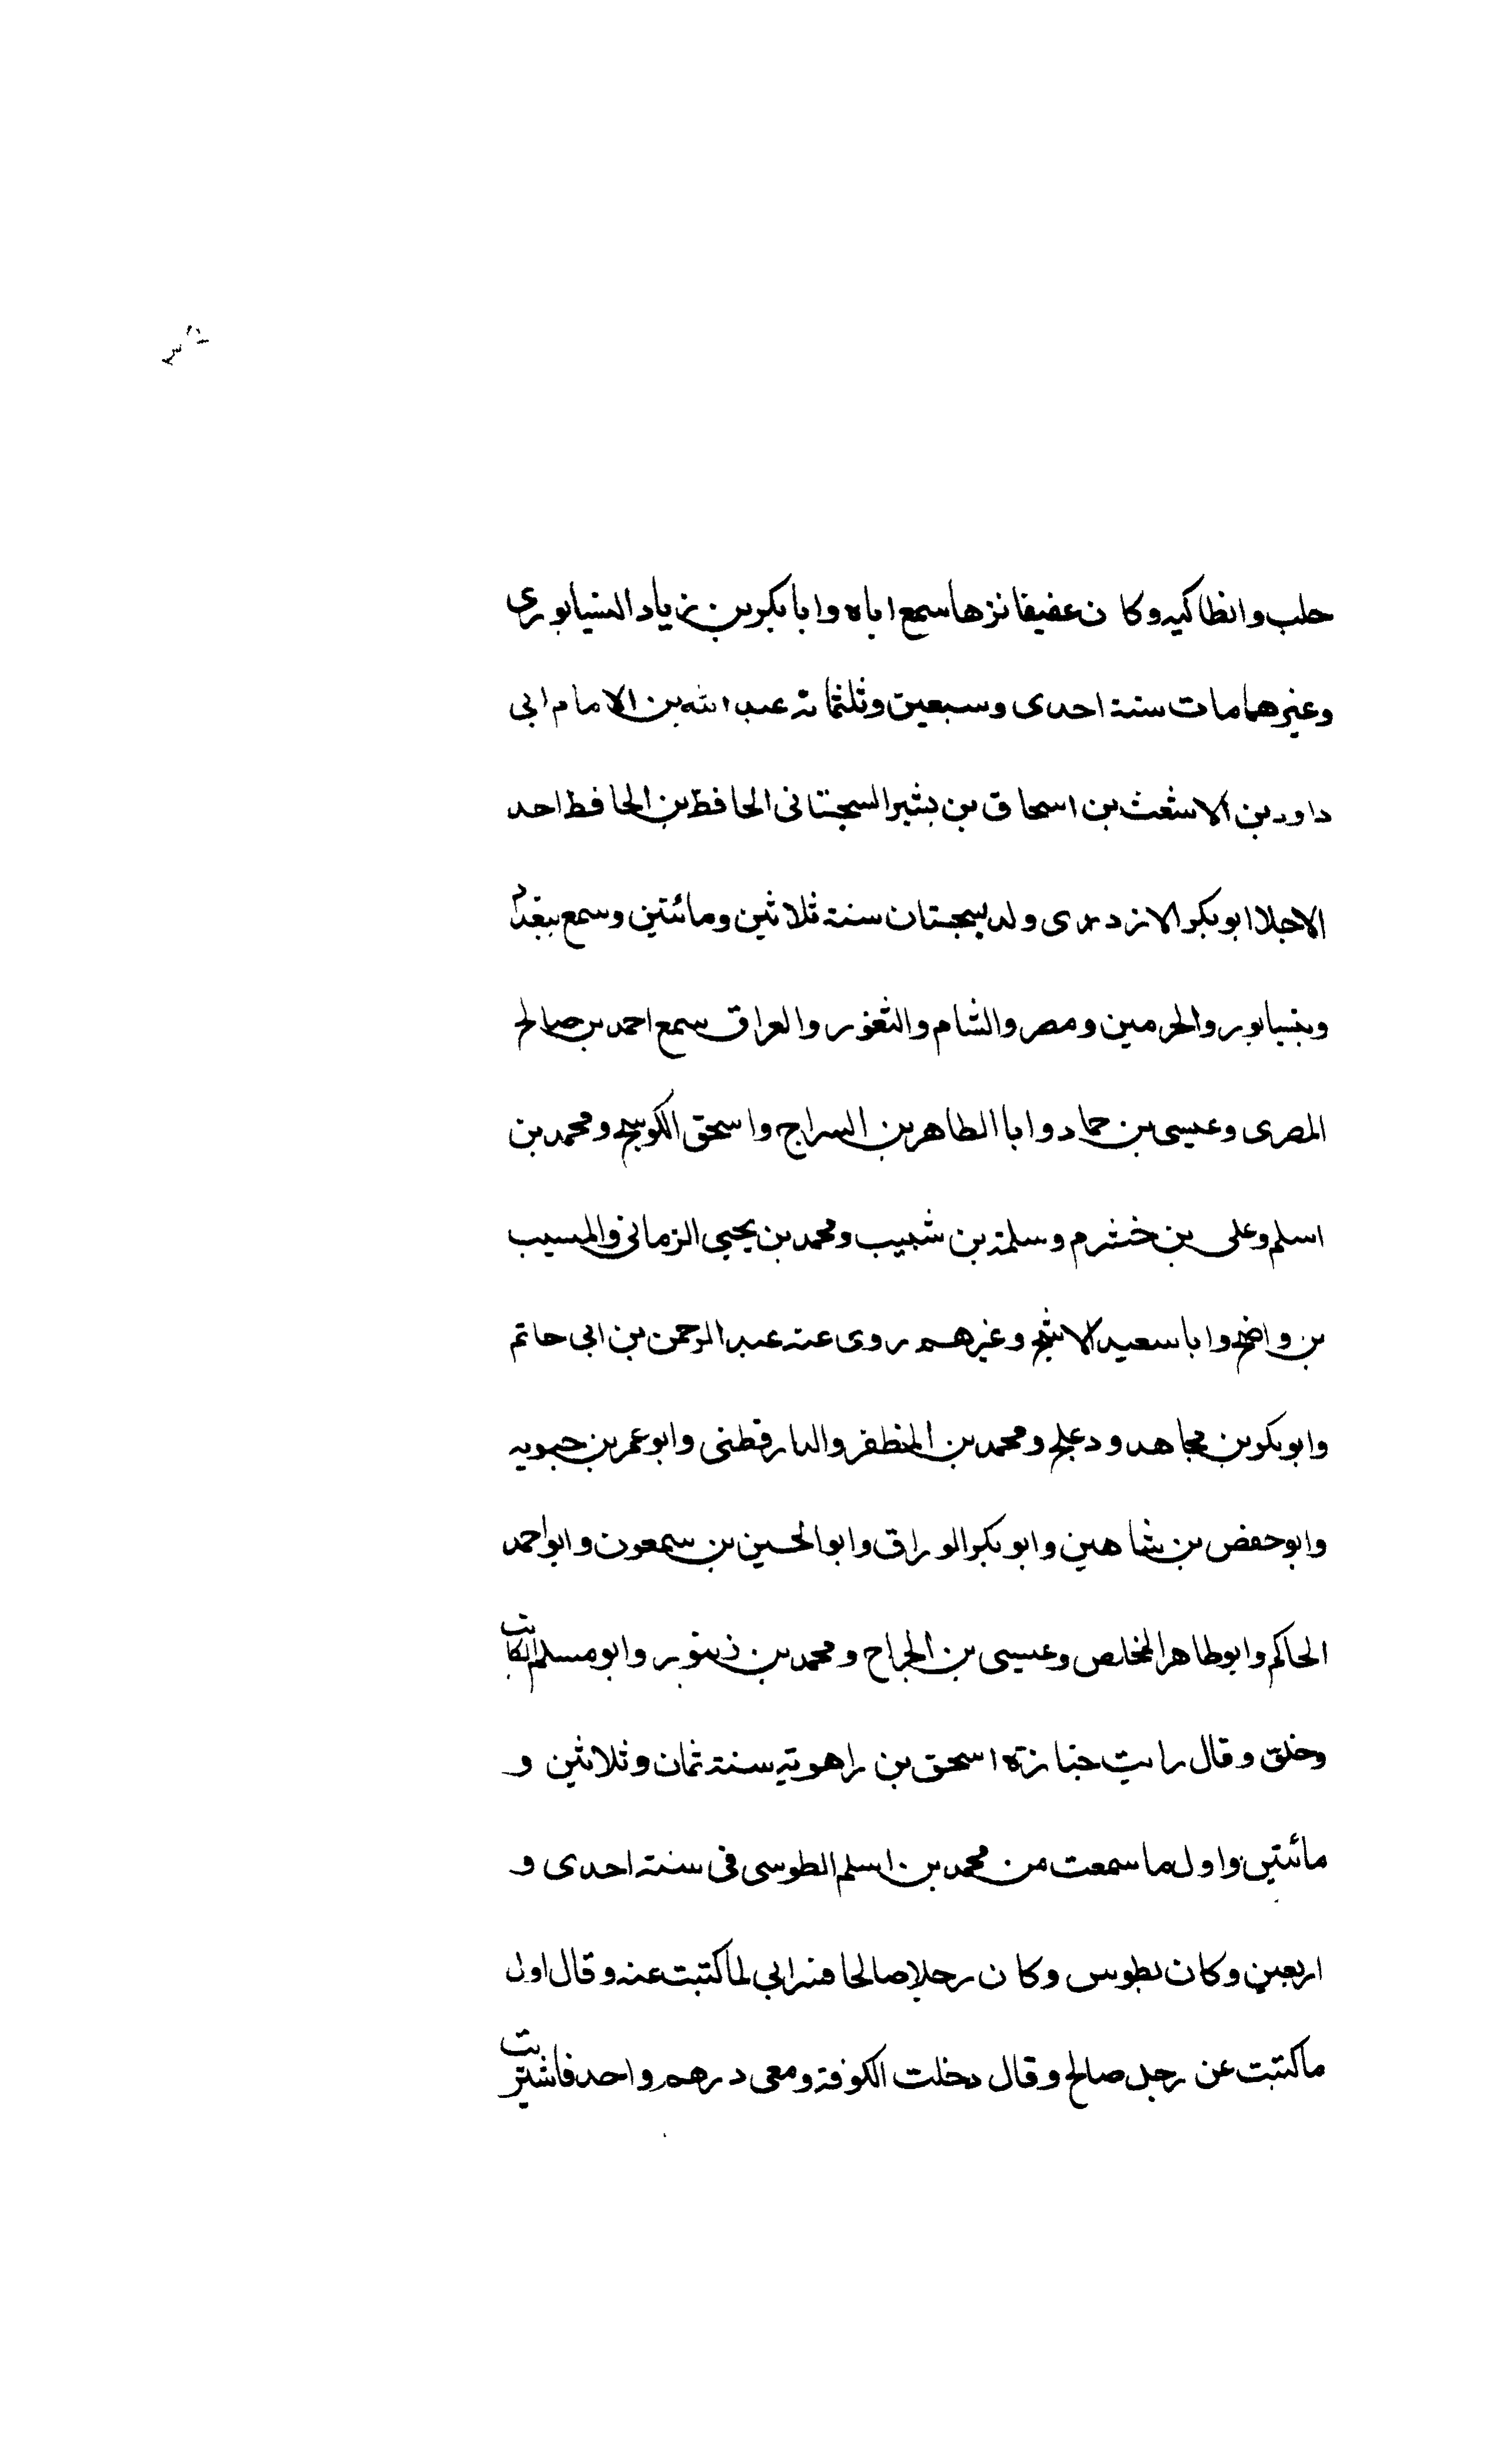 حلب وانطاكيه وكان عفيفا نزها سمع اباه وابا بكر بن زياد النسيابورى
وغيرهما مات سنة احدى وسبعين وثلثمائة عبد الله بن الامام ابى
داود بن الاشعث بن اسحاق بن بشير السجستانى الحافظ بن الحافظ احد
الاجلا ابو بكر الازدرى ولد بسجستان سنة ثلاثين ومائتين وسمع ببغداد
وبنسيابور والحرمين ومصر والشام والثغور والعراق سمع احمد بن صالح
المصرى وعيسى بن حماد وابا الطاهر بن السراج واسحق الكوسج ومحمد بن
اسلم وعلى بن خشرم وسلمة بن شبيب ومحمد بن يحيى الزمانى والمسيب
بن واضح وابا سعيد الاشج وغيرهم روى عنه عبد الرحمن بن ابى حاتم
وابو بكر بن مجاهد ودعلج ومحمد بن المظفر والدارقطنى وابو عمر بن حيويه
وابو حفص بن شاهين وابو بكر الوراق وابو الحسين بن سمعون وابو احمد
الحاكم وابو طاهر المخلص وعيسى بن الجراح ومحمد بن زنبور وابو مسلم الكاتب
وخلق وقال رايت جنازة اسحق بن راهويه سنة ثمان وثلاثين و
مائتين واول ما سمعت من محمد بن اسلم الطوسى فى سنة احدى و
اربعين وكان بطوس وكان رجلا صالحا ابى لما كتبت عنه وقال اول
ما كتبت عن رجل صالح وقال دخلت الكوفة ومعى درهم واحد فاشتريت